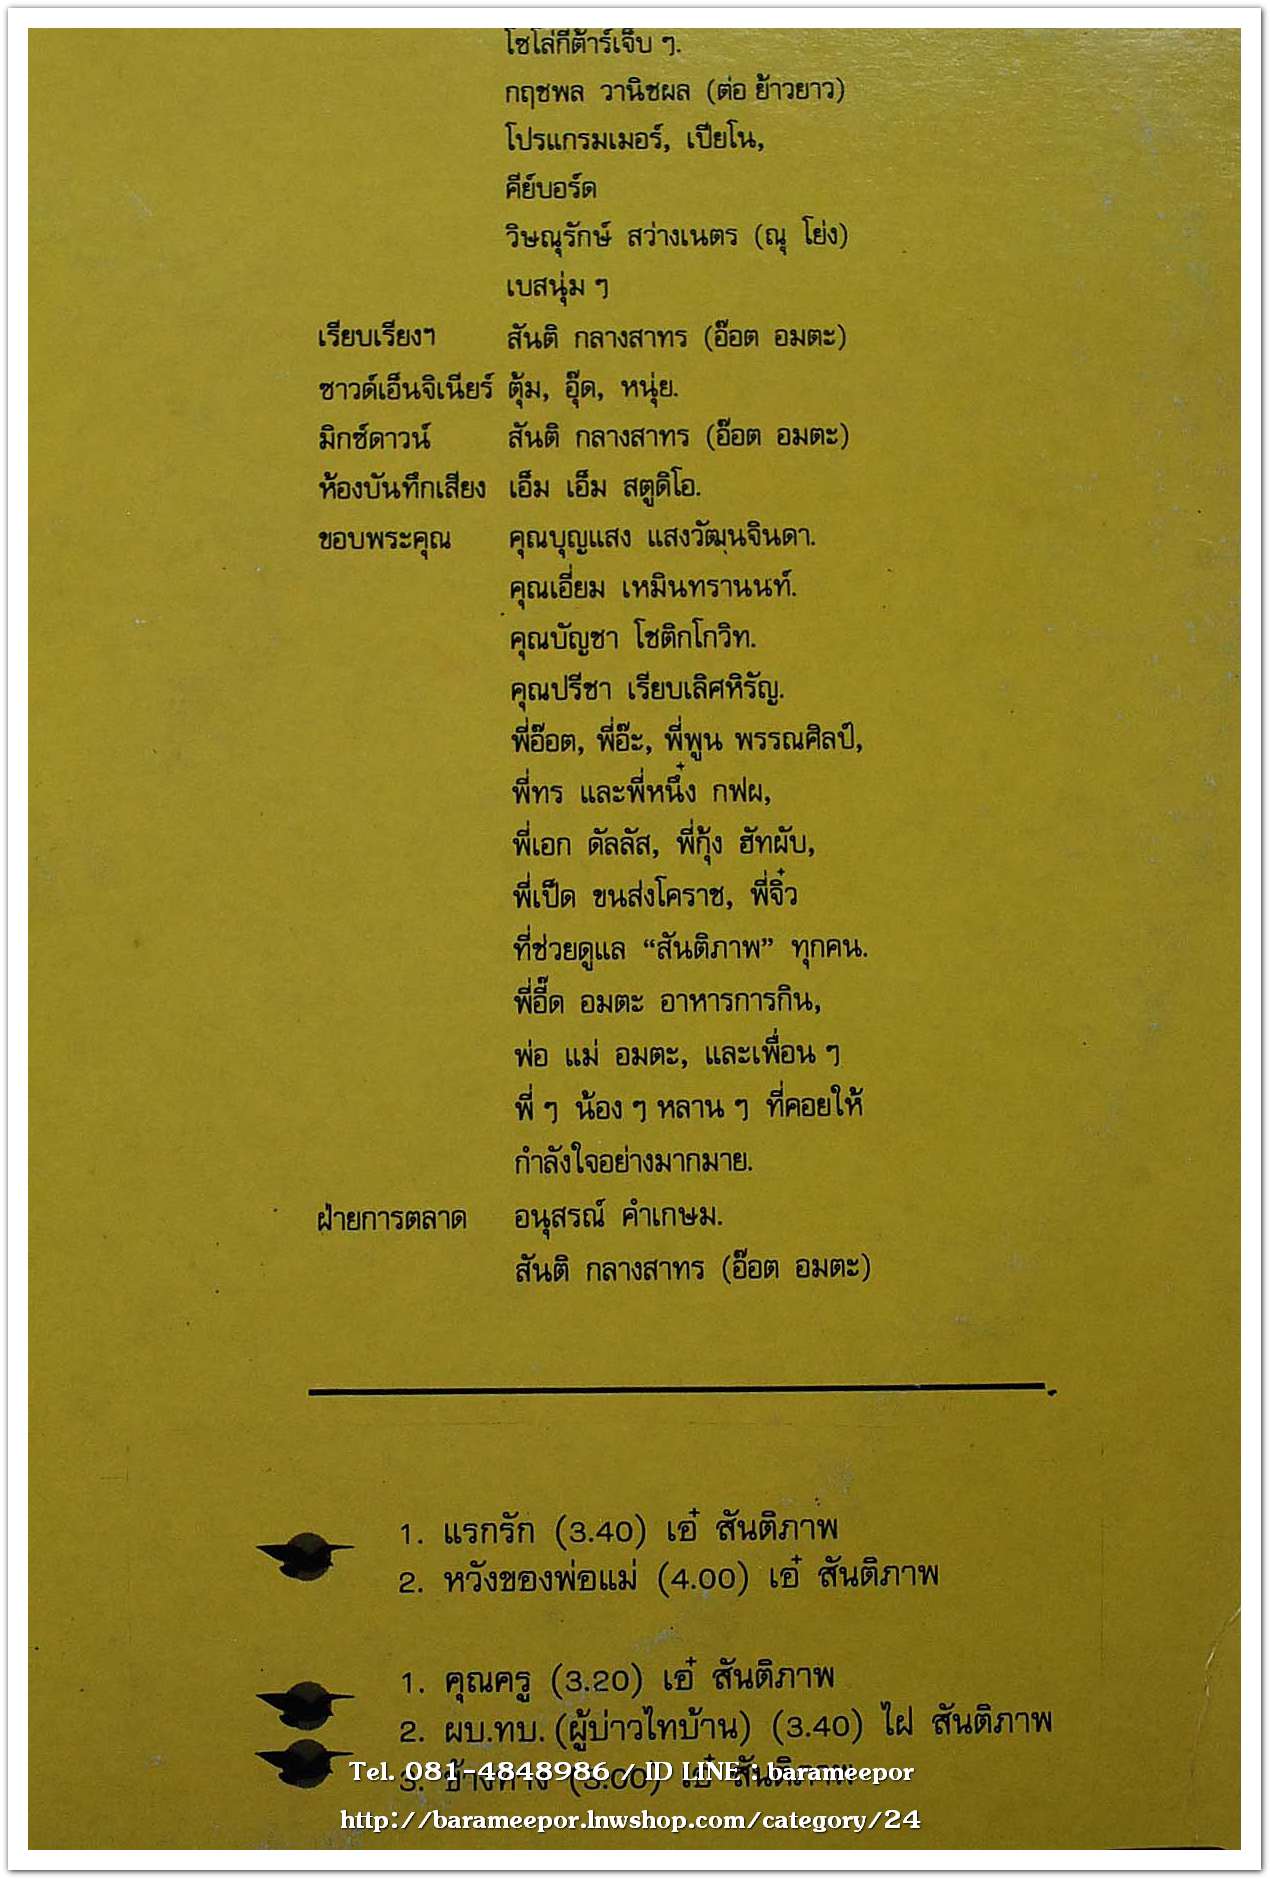 โซโล่กีต้าร์เจ็บ ๆ.
กฤชพล วานิชผล (ต่อ ย้าวยาว)
โปรแกรมเมอร์, เปียโน,
คีย์บอร์ด
วิษณุรักษ์ สว่างเนตร (ณุ โย่ง)
เบสนุ่ม ๆ
เรียบเรียงฯ สันติ กลางสาทร (อ๊อต อมตะ)
ซาวด์เอ็นจิเนียร์ ตุ้ม, อุ๊ด, หนุ่ย.
มิกซ์ดาวน์ สันติ กลางสาทร (อ๊อต อมตะ)
ห้องบันทึกเสียง เอ็ม เอ็ม สตูดิโอ.
ขอบพระคุณ คุณบุญแสง แสงวัฒนจินดา.
คุณเอี่ยม เหมินทรานนท์.
คุณบัญชา โชติกโกวิท.
คุณปรีชา เรียบเลิศหิรัญ.
พี่อ๊อต, พี่อ๊ะ, พี่พูน พรรณศิลป์,
พี่ทร และพี่หนึ๋ง กฟผ,
พี่เอก ดัลลัส, พี่กุ้ง ฮัทผับ,
พี่เป็ด ขนส่งโคราช, พี่จิ๋ว
ที่ช่วยดูแล “สันติภาพ” ทุกคน.
พี่อี๊ด อมตะ อาหารการกิน,
พ่อ แม่ อมตะ, และเพื่อน ๆ
พี่ ๆ น้อง ๆ หลาน ๆ ที่คอยให้
กำลังใจอย่างมากมาย.
ฝ่ายการตลาด อนุสรณ์ คำเกษม.
สันติ กลางสาทร (อ๊อต อมตะ)
1. แรกรัก (3.40) เอ๋ สันติภาพ
2. หวังของพ่อแม่ (4.00) เอ๋ สันติภาพ
1. คุณครู (3.20) เอ๋ สันติภาพ
2. ผบ.ทบ. (ผู้บ่าวไทบ้าน) (3.40) ไผ่ สันติภาพ
3. ข้างทาง (3.00) เอ๋ สันติภาพ
Tel. 081-4848986 / ID LINE : barameepor
http://barameepor.lnwshop.com/category/24